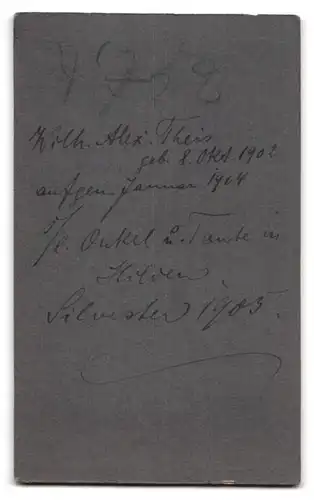 Wilh. Alex. Theis
geb. 8. Okt. 1902
aufgen. Januar 1904
s/l. Onkel u. Tante in
Hilden
Silvester 1905.